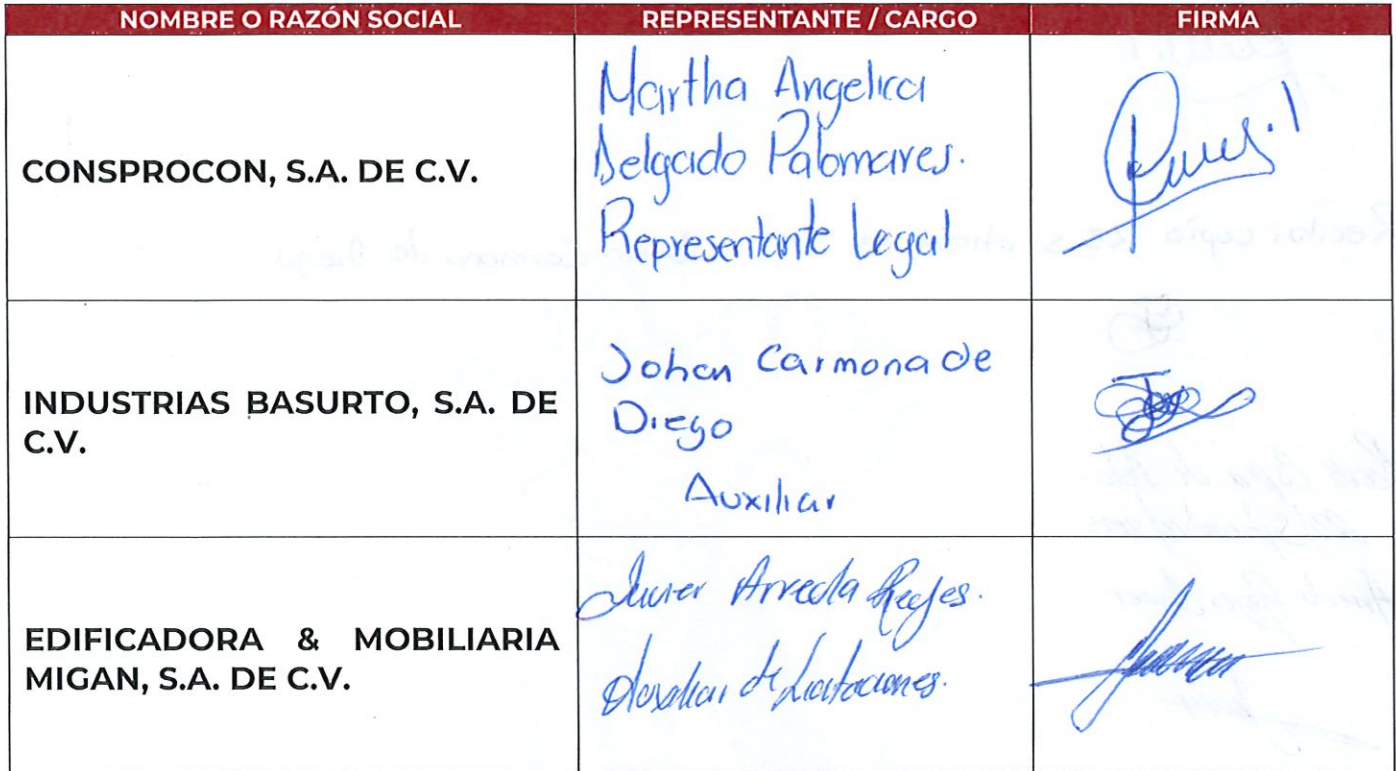 NOMBRE O RAZÓN SOCIAL REPRESENTANTE / CARGO FIRMA
CONSPROCON, S.A. DE C.V.
Martha Angelica
Delgado Palomares.
Representante Legal
INDUSTRIAS BASURTO, S.A. DE
C.V.
Johan Carmona de
Diego
Auxiliar
EDIFICADORA & MOBILIARIA
MIGAN, S.A. DE C.V.
Javier Arreola Reyes.
Auxiliar de Licitaciones.